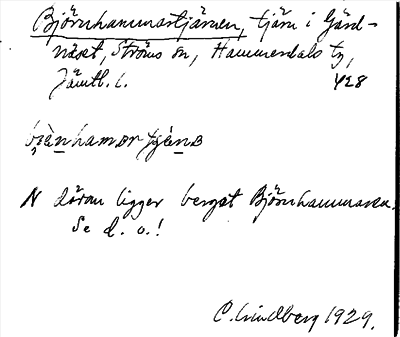 Björnhammartjärnen, tjärn i Gärd-
näset, Ströms sn, Hammerdals tg,
Jämtl. l. 428
N därom ligger berget Björnhammaren.
Se d. o.!
C. Lindberg 1929.